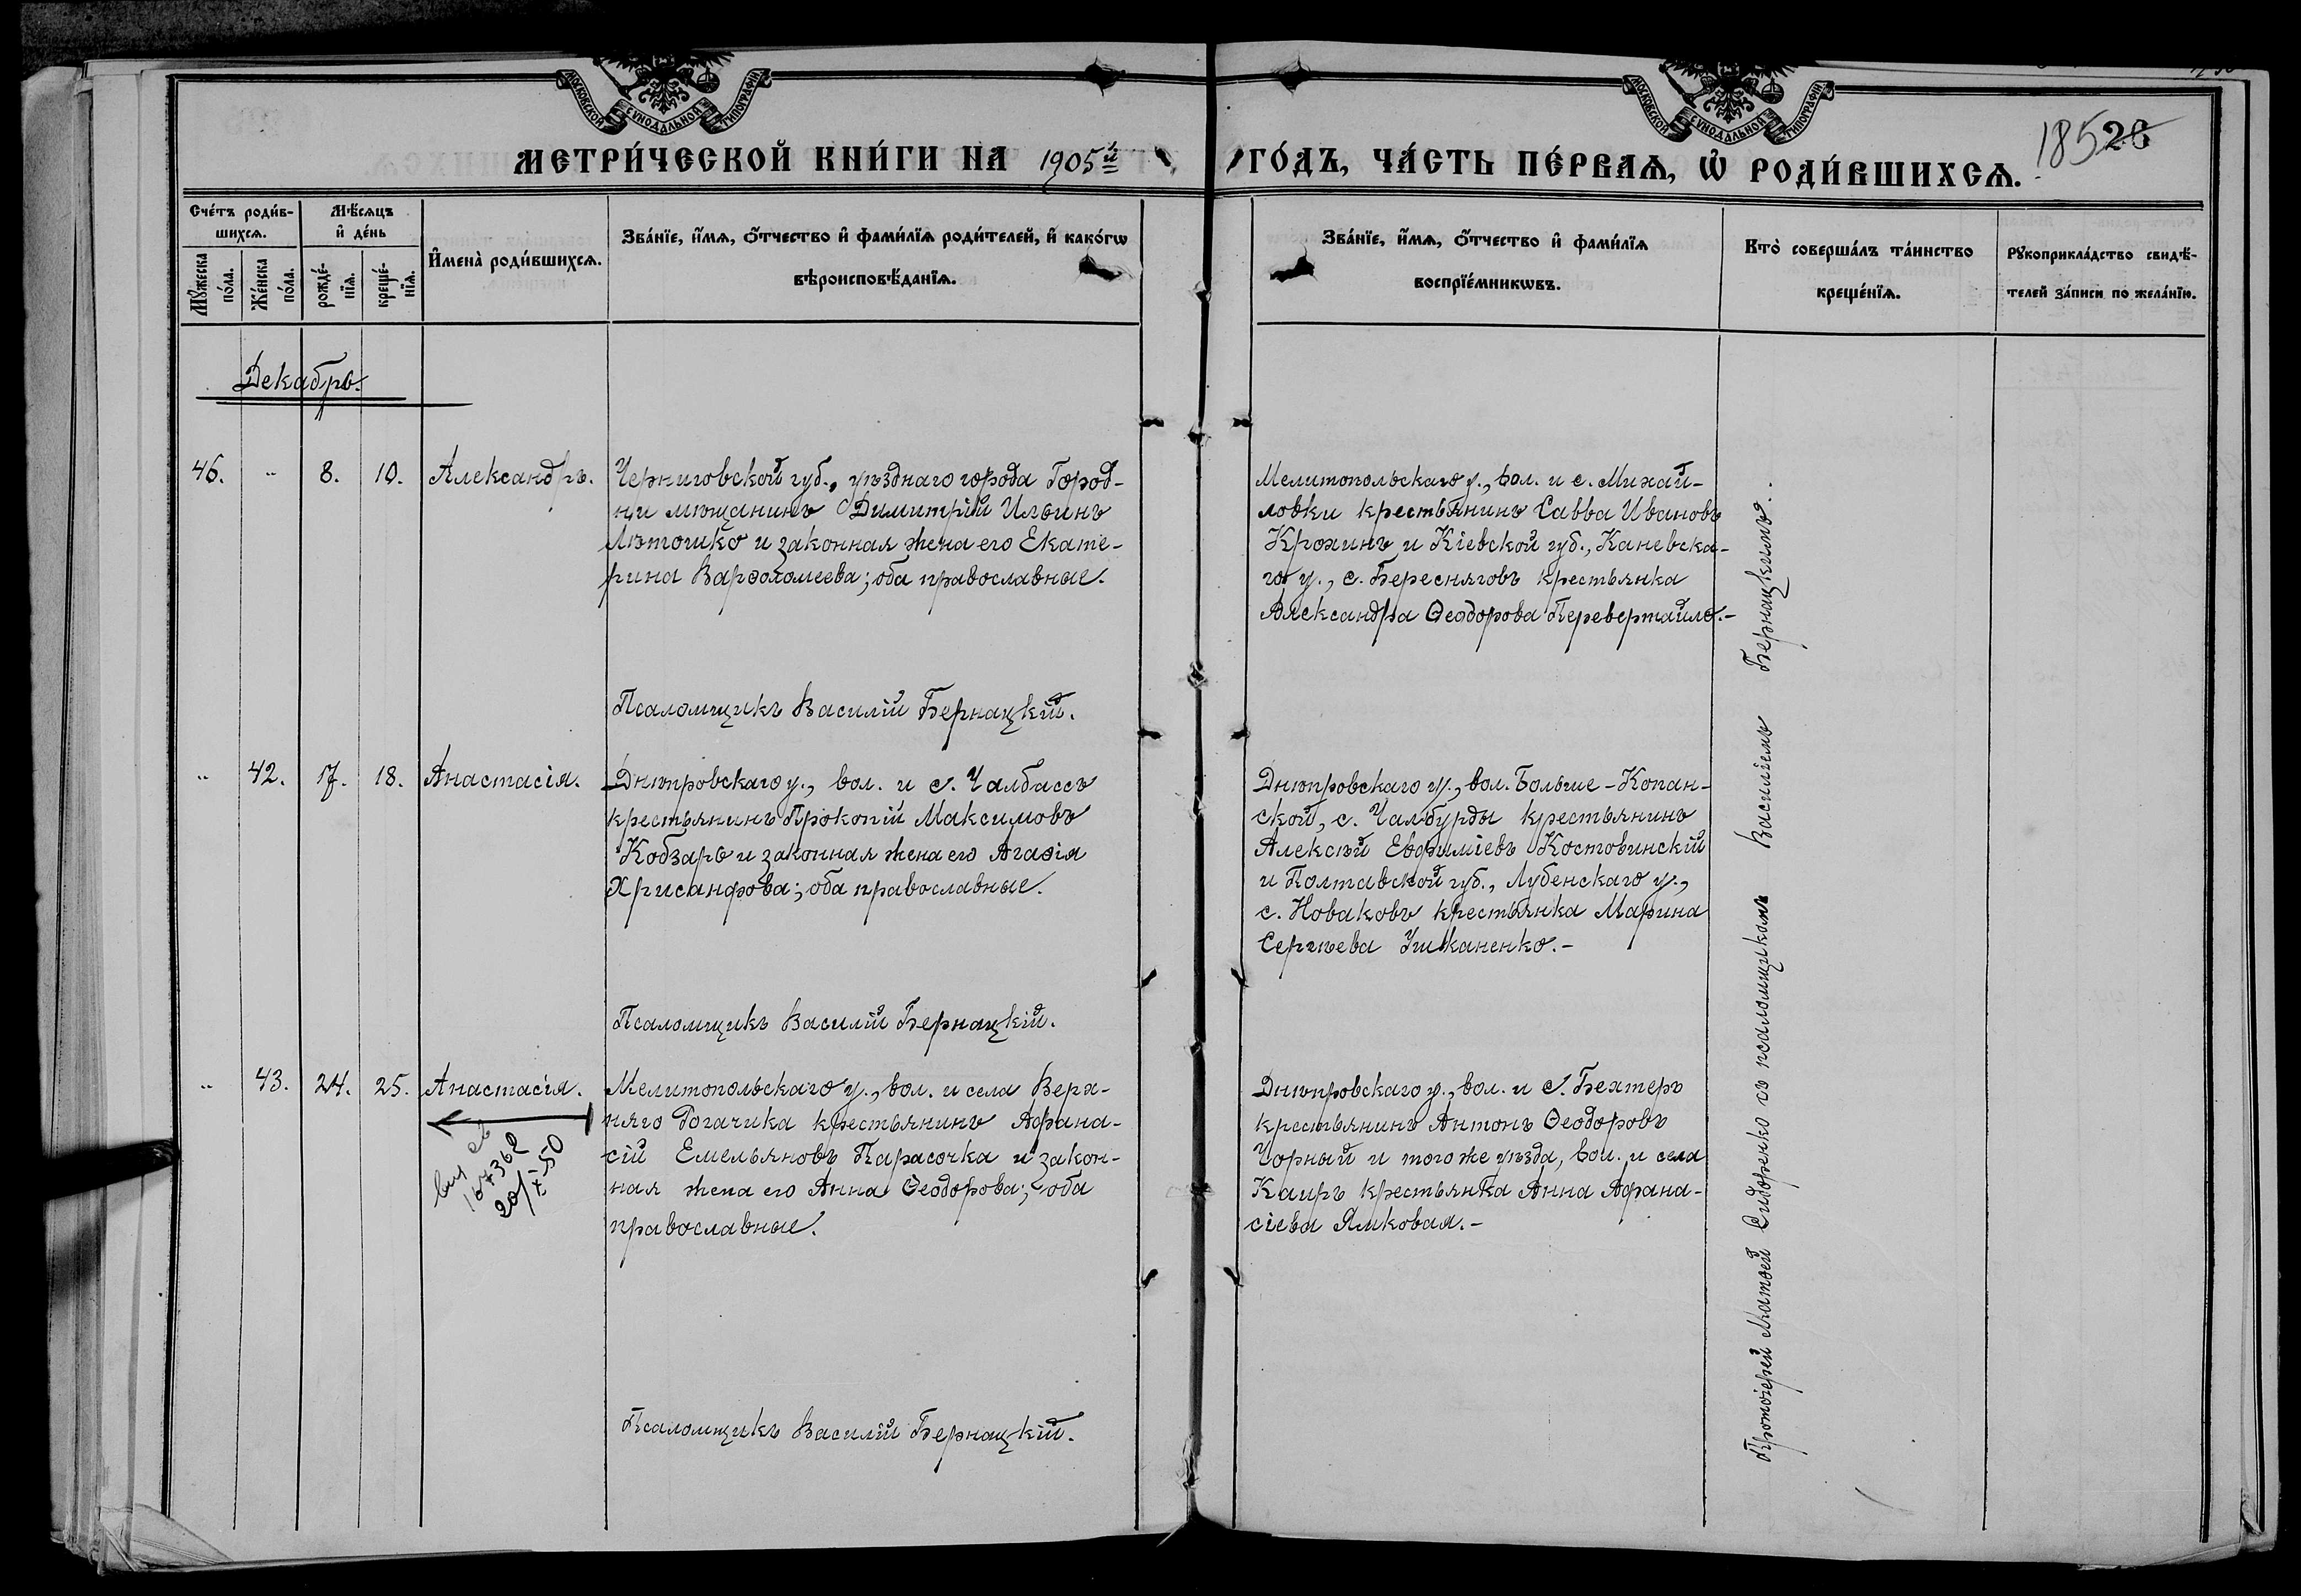 МОСКОВСКОЙ СѴНОДАЛЬНОЙ ТИПОГРАФІИ
МОСКОВСКОЙ СѴНОДАЛЬНОЙ ТИПОГРАФІИ
МЕТРИ́ЧЕСКОЙ КНИ́ГИ НА 1905й
ГО́ДЪ, ЧА́СТЬ ПЕ́РВАѦ, Ѡ҆ РОДИ́ВШИХСѦ.
185
26
Сче́тъ роди́в-
шихсѧ.
Мѣ́сѧцъ
и҆ де́нь
Мꙋ́жеска
по́ла.
Же́нска
по́ла.
рожде́-
нїѧ.
креще́-
нїѧ.
И҆мена̀ роди́вшихсѧ.
Зва́нїе, и҆́мѧ, ѻ҆́тчество и҆ фами́лїѧ роди́телей, и҆ како́гѡ
вѣроисповѣ́данїѧ.
Зва́нїе, и҆́мѧ, ѻ҆́тчество и҆ фами́лїѧ
воспрїе́мникѡвъ.
Кто̀ соверша́лъ та́инство
креще́нїѧ.
Рꙋкоприкла́дство свидѣ́-
телей за́писи по жела́нїю.
Декабрь.
46. „ 8. 10. Александръ.
Черниговской губ., уѣзднаго города Город-
ни мѣщанинъ Димитрій Ильинъ
Лѣтошко и законная жена его Екате-
рина Варѳоломеева; оба православные.
Псаломщикъ Василій Бернацкій.
Мелитопольскаго у., вол. и с. Михай-
ловки крестьянинъ Савва Ивановъ
Крохинъ и Кіевской губ., Каневска-
го у., с. Береснягов крестьянка
Александра Ѳеодорова Перевертайло.-
„ 42. 17. 18. Анастасія.
Днѣпровскаго у., вол. и с. Чалбассъ
крестьянинъ Прокопій Максимовъ
Кобзарь и законная жена его Агаѳія
Хрисанфова; оба православные.
Псаломщикъ Василій Бернацкій.
Днѣпровскаго у., вол. Больше-Копан-
ской, с. Чалбурды крестьянинъ
Алексѣй Евфиміевъ Костовинскій
и Полтавской губ., Лубенскаго у.,
с. Новаковъ крестьянка Марина
Сергѣева Ушканенко.-
„ 43. 24. 25. Анастасія.
167362
20/X-50
Мелитопольскаго у., вол. и села Верх-
няго Рогачика крестьянинъ Афана-
сій Емельяновъ Карасочка и закон-
ная жена его Анна Ѳеодорова; оба
православные.
Псаломщикъ Василій Бернацкій.
Днѣпровскаго у., вол. и с. Бехтеръ
крестьянинъ Антонъ Ѳеодоровъ
Чорный и того же уѣзда, вол. и села
Каиръ крестьянка Анна Афана-
сіева Ямковая.-
Протоіерей Матѳей Сидоренко съ псаломщикомъ Василіемъ Бернацкимъ.